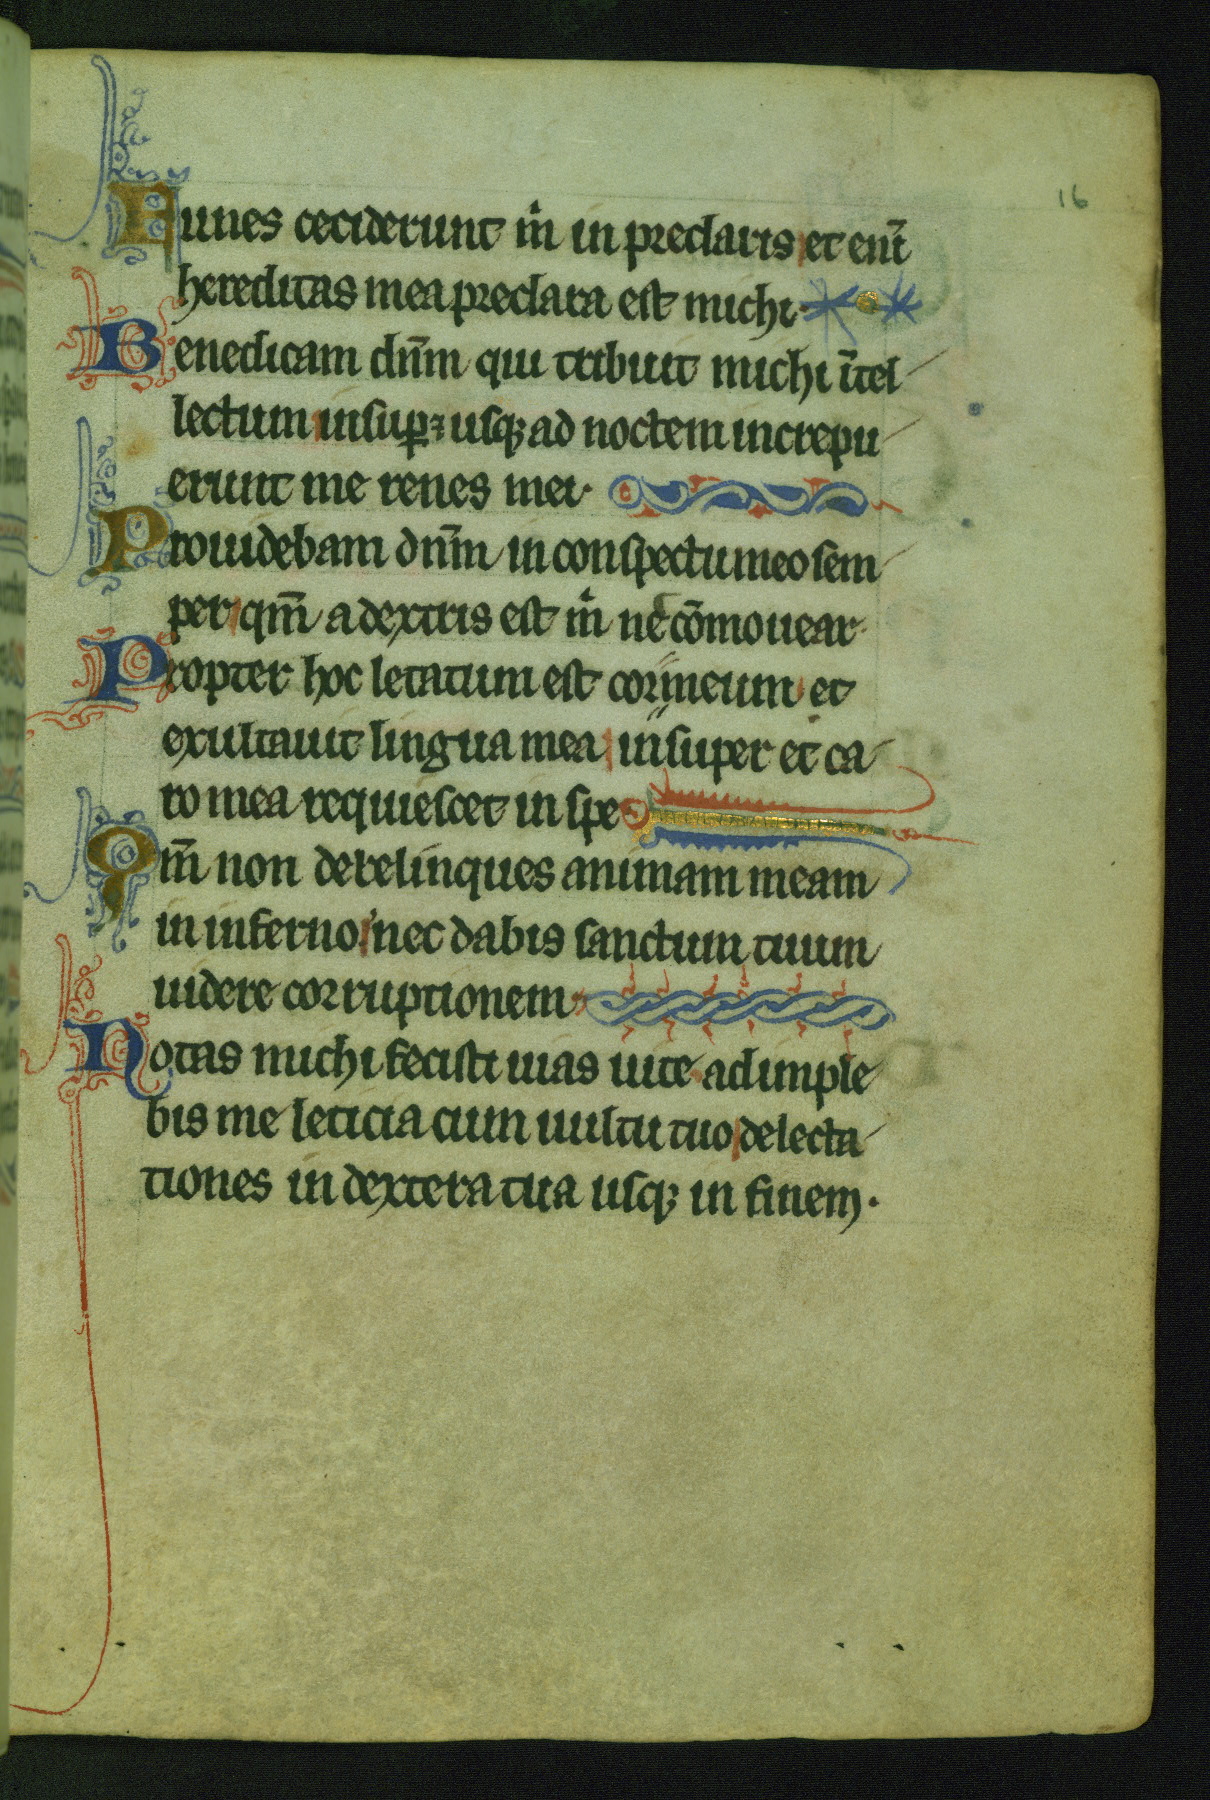 16
Funes ceciderunt m̊ in preclaris et enī
hereditas mea preclara est michi·
Benedicam dn̄m qui tribuit michi ītel
lectum insup⁊ usq; ad noctem increpu
erunt me renes mei·
Prouidebam dn̄m in conspectu meo sem
per qm̄ a dextris est m̊ ne cōmouear·
Propter hoc letatum est cor meum et
exultauit lingua mea insuper et ca
ro mea requiescet in spe
Qm̄ non derelinques animam meam
in inferno nec dabis sanctum tuum
uidere corruptionem·
Notas michi fecisti uias uite adimple
bis me leticia cum uultu tuo delecta
tiones in dextera tua usq; in finem·